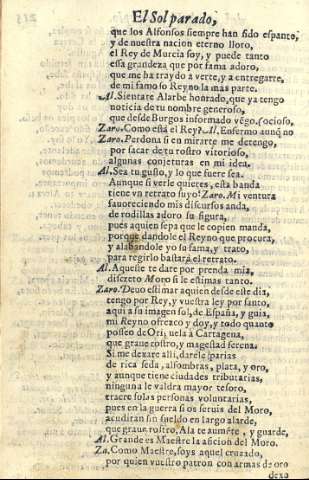 El Sol parado,
que los Alfonsos siempre han sido espanto,
y de nuestra nacion eterno lloro,
el Rey de Murcia soy, y puede tanto
essa grandeza que por fama adoro,
que me ha traydo a verte, y a entregarte,
de mi famoso Reyno la mas parte.
Al. Sientate Alarbe honrado, que ya tengo
noticia de tu nombre generoso,
que desde Burgos informado vẽgo.
Zaro. Como està el Rey? Al. Enfermo aunq̃ no
Zaro. Perdona si en mirarte me detengo,
por sacar de tu rostro vitorioso,
algunas conjeturas en mi idea.
Al. Sea tu gusto, y lo que fuere sea.
Aunque si verle quieres, esta banda
tiene vn retrato suyo. Zaro. Mi ventura
fauoreciendo mis discursos anda,
de rodillas adoro su figura,
pues quien sepa que le copien manda,
porque dandole el Reyno que procura,
y alabandole yo su fama, y trato,
para regirlo bastarà el retrato.
Al. Aqueste te dare por prenda mia,
discreto Moro si le estimas tanto.
Zaro. Deuo estimar aquien desde este dia,
tengo por Rey, y vuestra ley por santo,
aqui a su imagen sol, de España, y guia,
mi Reyno ofrezco y doy, y todo quanto
posseo de Oriuela à Cartagena,
que graue rostro, y magestad serena.
Si me dexare alli, darèle parias
de rica seda, alfombras, plata, y oro,
y aunque tiene ciudades tributarias,
ninguna le valdra mayor tesoro,
traere solas personas voluntarias,
pues en la guerra si os seruis del Moro,
acudiran sin sueldo en largo alarde,
que graue rostro, Ala te aumẽte, y guarde,
Al. Grande es Maestre la aficion del Moro.
Za. Como Maestre, soys aquel cruzado,
por quien vuestro patron con armas de oro
dexo